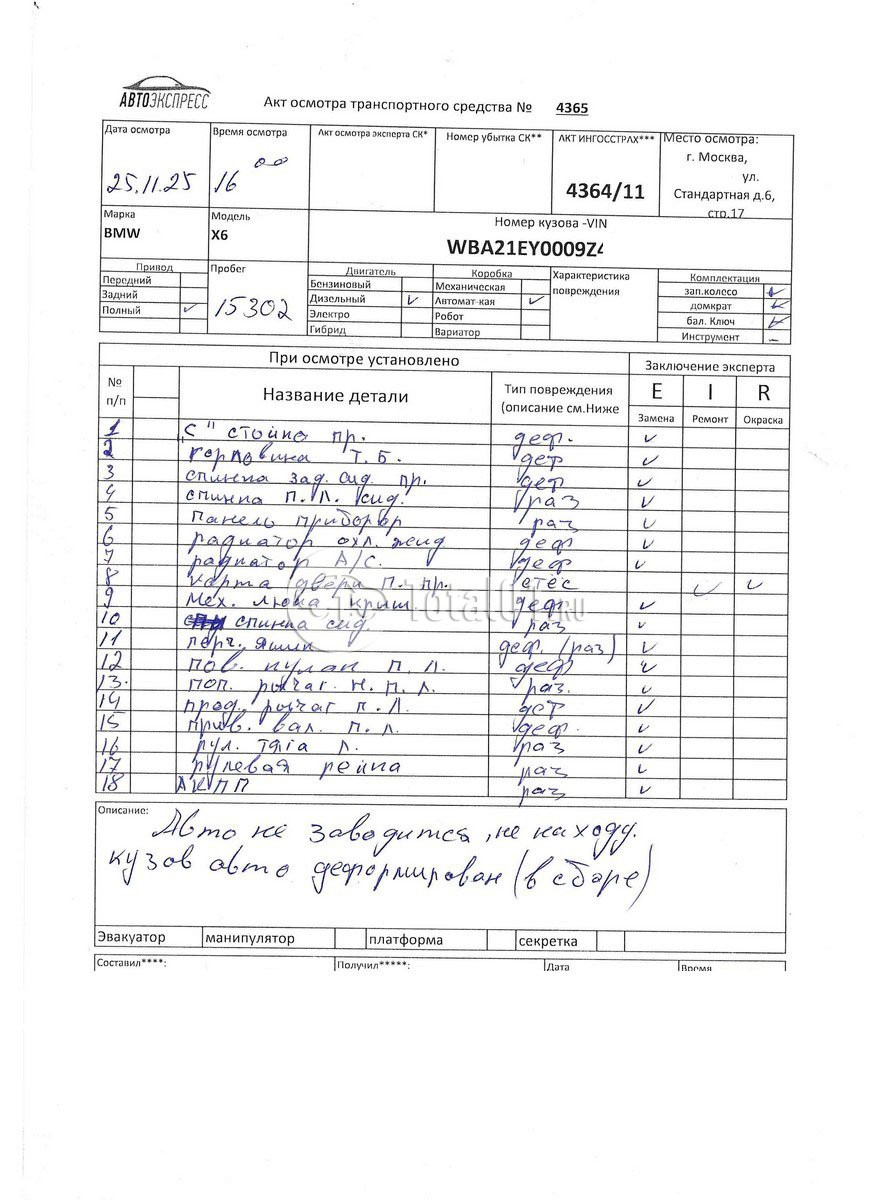 АВТОЭКСПРЕСС
Акт осмотра транспортного средства № 4365
Дата осмотра
25.11.25
Время осмотра
16 00
Акт осмотра эксперта СК*
Номер убытка СК**
АКТ ИНГОССТРАХ***
4364/11
Место осмотра:
г. Москва,
ул.
Стандартная д.6,
стр.17
Марка
BMW
Модель
X6
Номер кузова -VIN
WBA21EY0009Z4
Привод
Передний
Задний
Полный ✓
Пробег
15302
Двигатель
Бензиновый
Дизельный ✓
Электро
Гибрид
Коробка
Механическая
Автомат-кая ✓
Робот
Вариатор
Характеристика
повреждения
Комплектация
зап.колесо ✓
домкрат ✓
бал. Ключ ✓
Инструмент –
При осмотре установлено
Заключение эксперта
№
п/п
Название детали
Тип повреждения
(описание см.Ниже
E I R
Замена Ремонт Окраска
1 "С" стойка пр. деф. ✓
2 горловина Т.Б. деф ✓
3 спинка зад. сид. пр. деф ✓
4 спинка п.л. сид. раз ✓
5 панель приборов раз ✓
6 радиатор охл. жид деф ✓
7 радиатор A/C. деф ✓
8 карта двери п. пр. стёс ✓ ✓
9 мех. люка крыш. деф ✓
10 спинка сид. раз ✓
11 перч. ящик деф. (раз) ✓
12 пов. кулак п.л. деф ✓
13. поп. рычаг н.п.л. раз. ✓
14 прод. рычаг п.л. деф ✓
15 прив. вал. п.л. деф. ✓
16 рул. тяга л. раз ✓
17 рулевая рейка раз ✓
18 АКПП раз ✓
Total01.RU
Описание:
Авто не заводится, не на ходу.
кузов авто деформирован (в сборе)
Эвакуатор манипулятор платформа секретка
Составил****: Получил*****: Дата Время